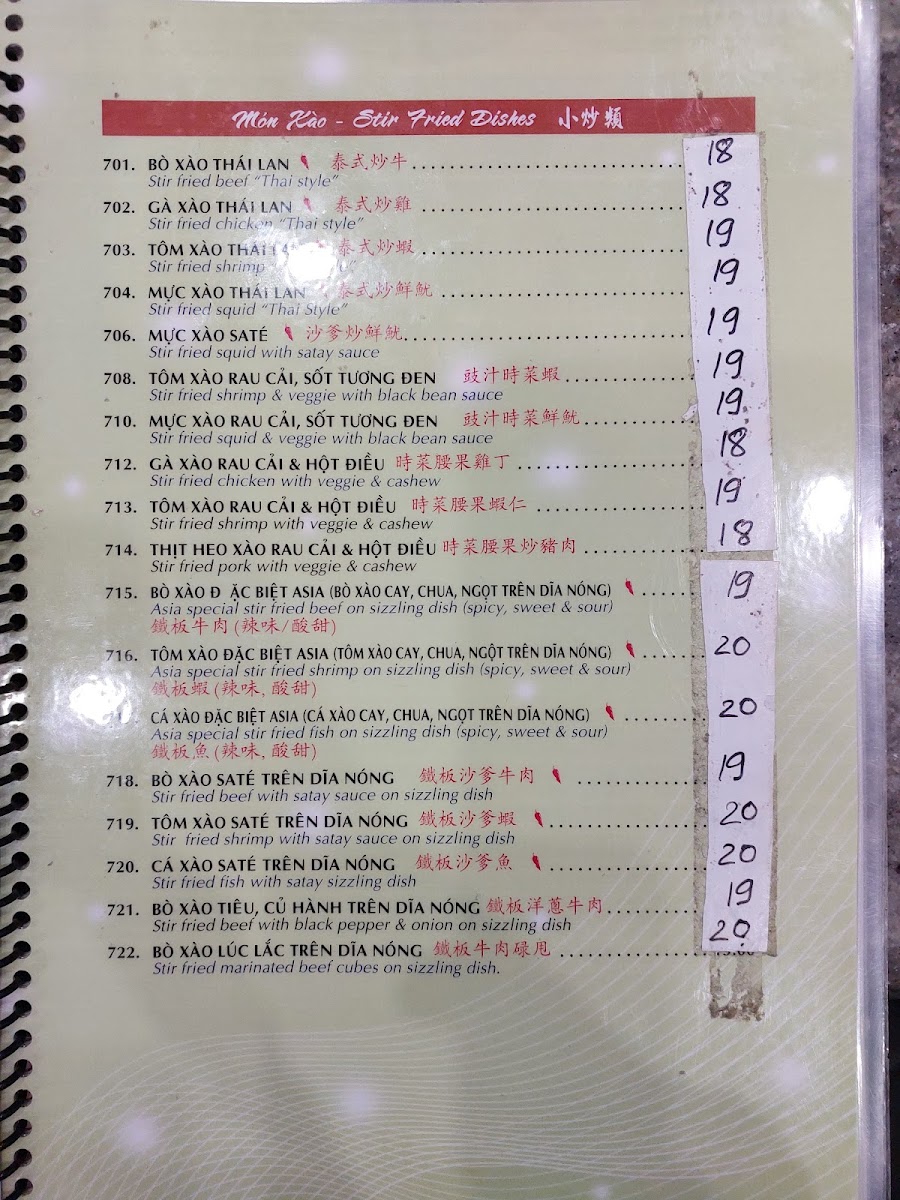 Món Xào - Stir Fried Dishes 小炒類
701. BÒ XÀO THÁI LAN 泰式炒牛 18
Stir fried beef "Thai style"
702. GÀ XÀO THÁI LAN 泰式炒雞 18
Stir fried chicken "Thai style"
703. TÔM XÀO THÁI 泰式炒蝦 19
Stir fried shrimp
704. MỰC XÀO THÁI LAN 泰式炒鮮魷 19
Stir fried squid "Thai Style"
706. MỰC XÀO SATÉ 沙爹炒鮮魷 19
Stir fried squid with satay sauce
708. TÔM XÀO RAU CẢI, SỐT TƯƠNG ĐEN 豉汁時菜蝦 19
Stir fried shrimp & veggie with black bean sauce
710. MỰC XÀO RAU CẢI, SỐT TƯƠNG ĐEN 豉汁時菜鮮魷 19
Stir fried squid & veggie with black bean sauce
712. GÀ XÀO RAU CẢI & HỘT ĐIỀU 時菜腰果雞丁 18
Stir fried chicken with veggie & cashew
713. TÔM XÀO RAU CẢI & HỘT ĐIỀU 時菜腰果蝦仁 19
Stir fried shrimp with veggie & cashew
714. THỊT HEO XÀO RAU CẢI & HỘT ĐIỀU 時菜腰果炒豬肉 18
Stir fried pork with veggie & cashew
715. BÒ XÀO Đ ẶC BIỆT ASIA (BÒ XÀO CAY, CHUA, NGỌT TRÊN DĨA NÓNG) 19
Asia special stir fried beef on sizzling dish (spicy, sweet & sour)
鐵板牛肉 (辣味/酸甜)
716. TÔM XÀO ĐẶC BIỆT ASIA (TÔM XÀO CAY, CHUA, NGỘT TRÊN DĨA NÓNG) 20
Asia special stir fried shrimp on sizzling dish (spicy, sweet & sour)
鐵板蝦 (辣味, 酸甜)
CÁ XÀO ĐẶC BIỆT ASIA (CÁ XÀO CAY, CHUA, NGỌT TRÊN DĨA NÓNG) 20
Asia special stir fried fish on sizzling dish (spicy, sweet & sour)
鐵板魚 (辣味, 酸甜)
718. BÒ XÀO SATÉ TRÊN DĨA NÓNG 鐵板沙爹牛肉 19
Stir fried beef with satay sauce on sizzling dish
719. TÔM XÀO SATÉ TRÊN DĨA NÓNG 鐵板沙爹蝦 20
Stir fried shrimp with satay sauce on sizzling dish
720. CÁ XÀO SATÉ TRÊN DĨA NÓNG 鐵板沙爹魚 20
Stir fried fish with satay sizzling dish
721. BÒ XÀO TIÊU, CỦ HÀNH TRÊN DĨA NÓNG 鐵板洋蔥牛肉 19
Stir fried beef with black pepper & onion on sizzling dish
722. BÒ XÀO LÚC LẮC TRÊN DĨA NÓNG 鐵板牛肉碌甩 20
Stir fried marinated beef cubes on sizzling dish.